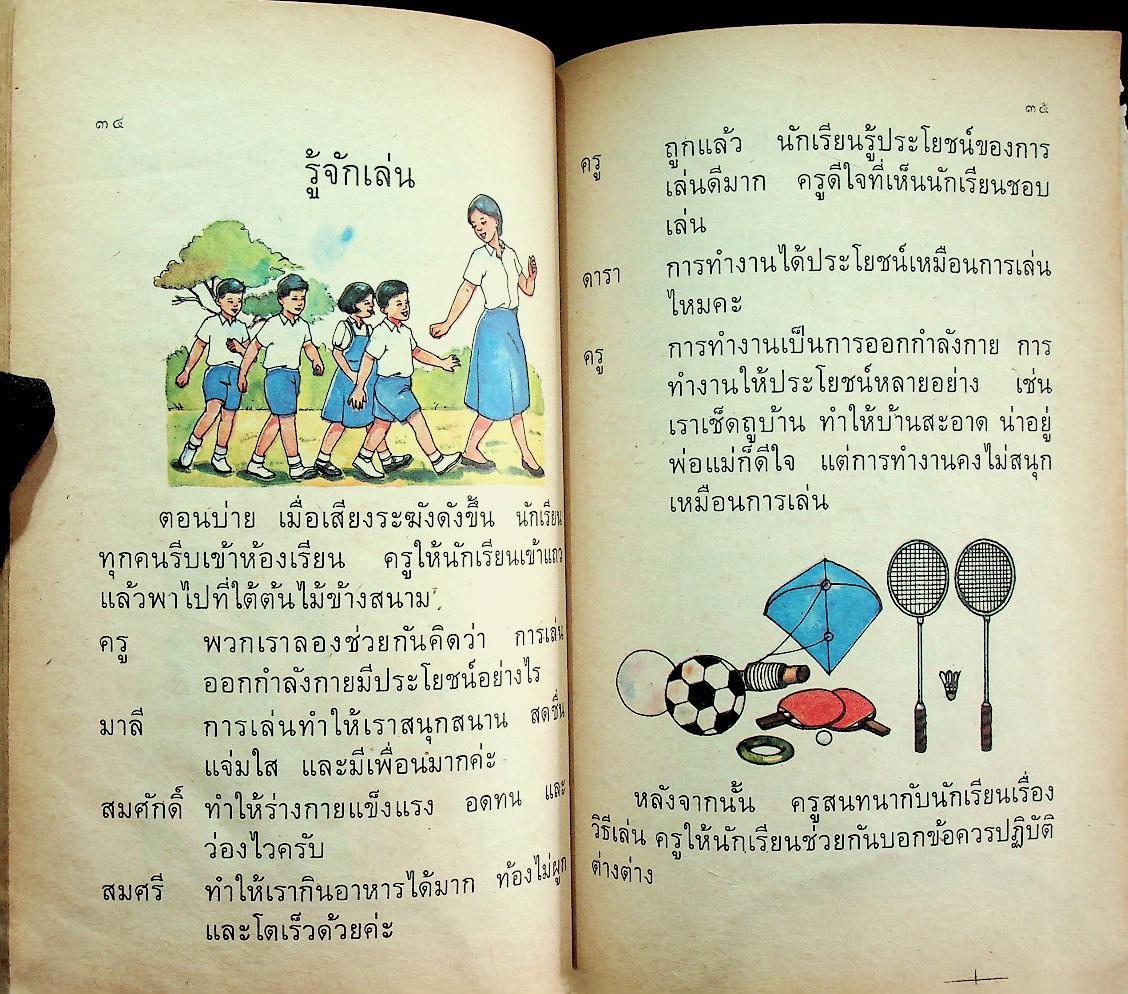 ๓๔
รู้จักเล่น
ตอนบ่าย เมื่อเสียงระฆังดังขึ้น นักเรียน
ทุกคนรีบเข้าห้องเรียน ครูให้นักเรียนเข้าแถว
แล้วพาไปที่ใต้ต้นไม้ข้างสนาม
ครู พวกเราลองช่วยกันคิดว่า การเล่น
ออกกำลังกายมีประโยชน์อย่างไร
มาลี การเล่นทำให้เราสนุกสนาน สดชื่น
แจ่มใส และมีเพื่อนมากค่ะ
สมศักดิ์ ทำให้ร่างกายแข็งแรง อดทน และ
ว่องไวครับ
สมศรี ทำให้เรากินอาหารได้มาก ท้องไม่ผูก
และโตเร็วด้วยค่ะ
๓๕
ครู ถูกแล้ว นักเรียนรู้ประโยชน์ของการ
เล่นดีมาก ครูดีใจที่เห็นนักเรียนชอบ
เล่น
ดารา การทำงานได้ประโยชน์เหมือนการเล่น
ไหมคะ
ครู การทำงานเป็นการออกกำลังกาย การ
ทำงานให้ประโยชน์หลายอย่าง เช่น
เราเช็ดถูบ้าน ทำให้บ้านสะอาด น่าอยู่
พ่อแม่ก็ดีใจ แต่การทำงานคงไม่สนุก
เหมือนการเล่น
หลังจากนั้น ครูสนทนากับนักเรียนเรื่อง
วิธีเล่น ครูให้นักเรียนช่วยกันบอกข้อควรปฏิบัติ
ต่างต่าง